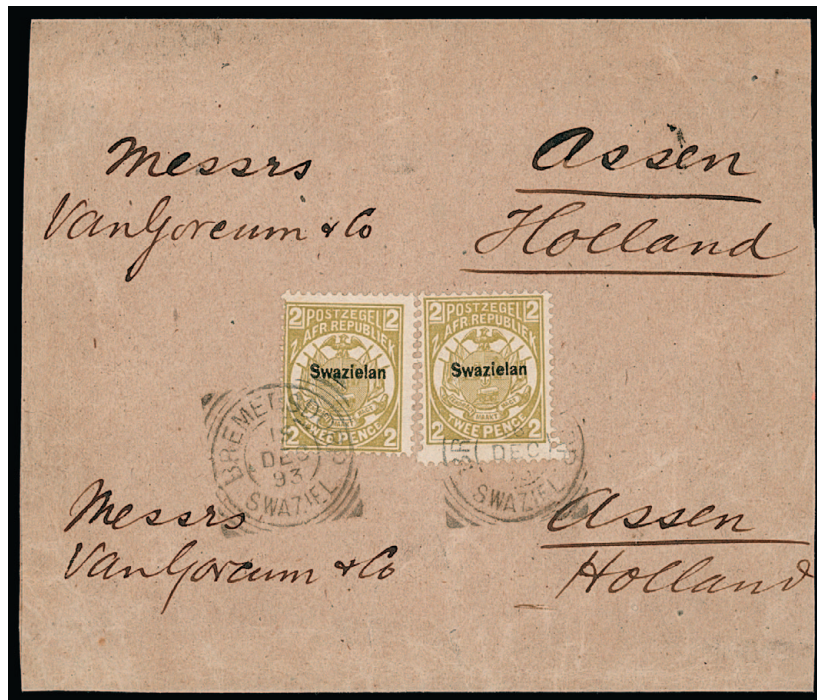 Messrs
Van Gorcum & Co
Assen
Holland
2 POSTZEGEL 2
Z. AFR. REPUBLIEK
Swazielan
2 TWEE PENCE 2
2 POSTZEGEL 2
Z. AFR. REPUBLIEK
Swazielan
2 TWEE PENCE 2
BREMERSDO
DEC
93
SWAZIEL
DEC
SWAZIEL
Messrs
Van Gorcum & Co
Assen
Holland